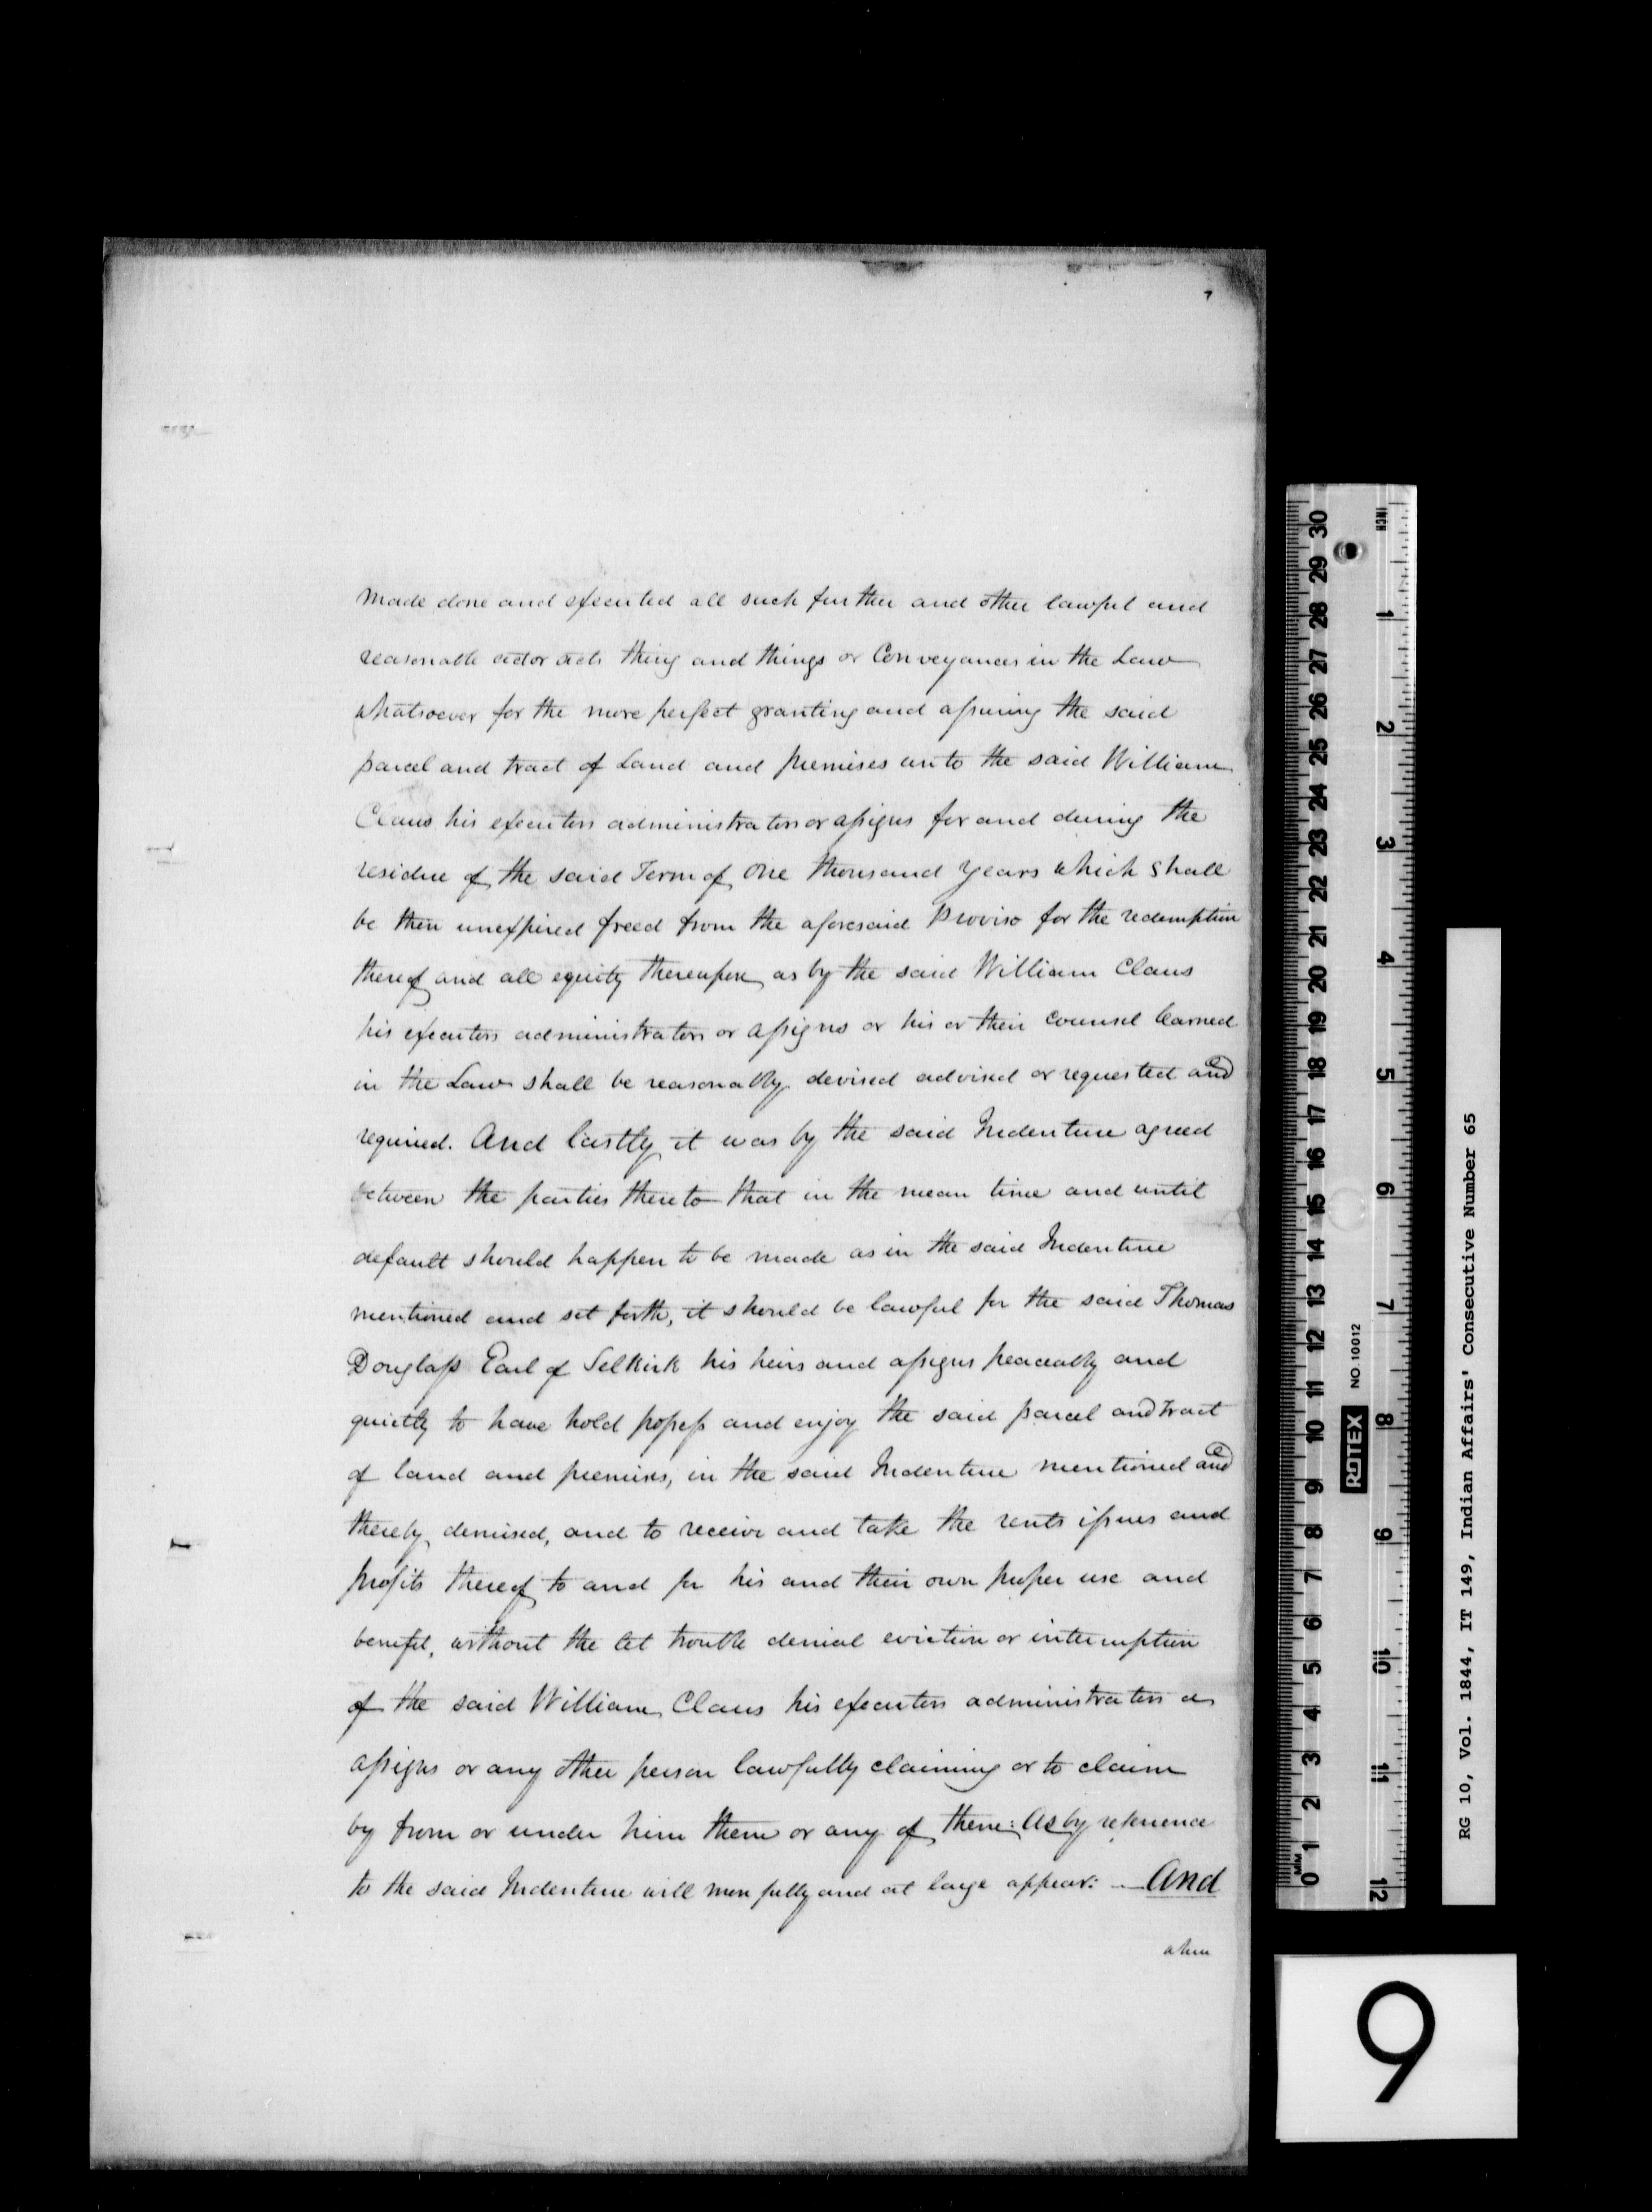 7
made done and executed all such further and other lawful and
reasonable act or acts thing and things or Conveyances in the Law
whatsoever for the more perfect granting and assuring the said
parcel and tract of Land and premises unto the said William
Claus his executors administrators or assigns for and during the
residue of the said Term of One thousand years which shall
be then unexpired freed from the aforesaid Proviso for the redemption
thereof and all equity thereupon as by the said William Claus
his executors administrators or assigns or his or their counsel learned
in the Law shall be reasonably devised advised or requested and
required. And lastly it was by the said Indenture agreed
between the parties thereto that in the mean time and until
default should happen to be made as in the said Indenture
mentioned and set forth, it should be lawful for the said Thomas
Douglass Earl of Selkirk his heirs and assigns peaceably and
quietly to have hold possess and enjoy the said parcel and tract
of land and premises, in the said Indenture mentioned and
thereby demised, and to receive and take the rents issues and
profits thereof to and for his and their own proper use and
benefit, without the let trouble denial eviction or interruption
of the said William Claus his executors administrators or
assigns or any other person lawfully claiming or to claim
by from or under him them or any of them: As by reference
to the said Indenture will more fully and at large appear: — And
INCH
1 2 3 4 5 6 7 8 9 10 11 12
30 29 28 27 26 25 24 23 22 21 20 19 18 17 16 15 14 13 12 11 10 9 8 7 6 5 4 3 2 1 0
MM
ROTEX NO.10012
RG 10, Vol. 1844, IT 149, Indian Affairs' Consecutive Number 65
9